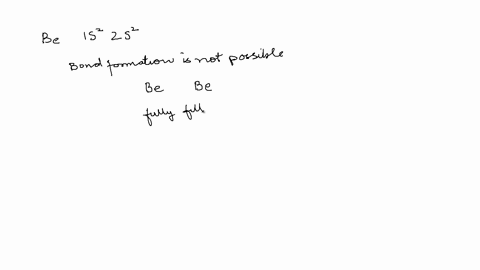 Be 1S² 2S²
Bond formation is not possible
Be Be
fully full